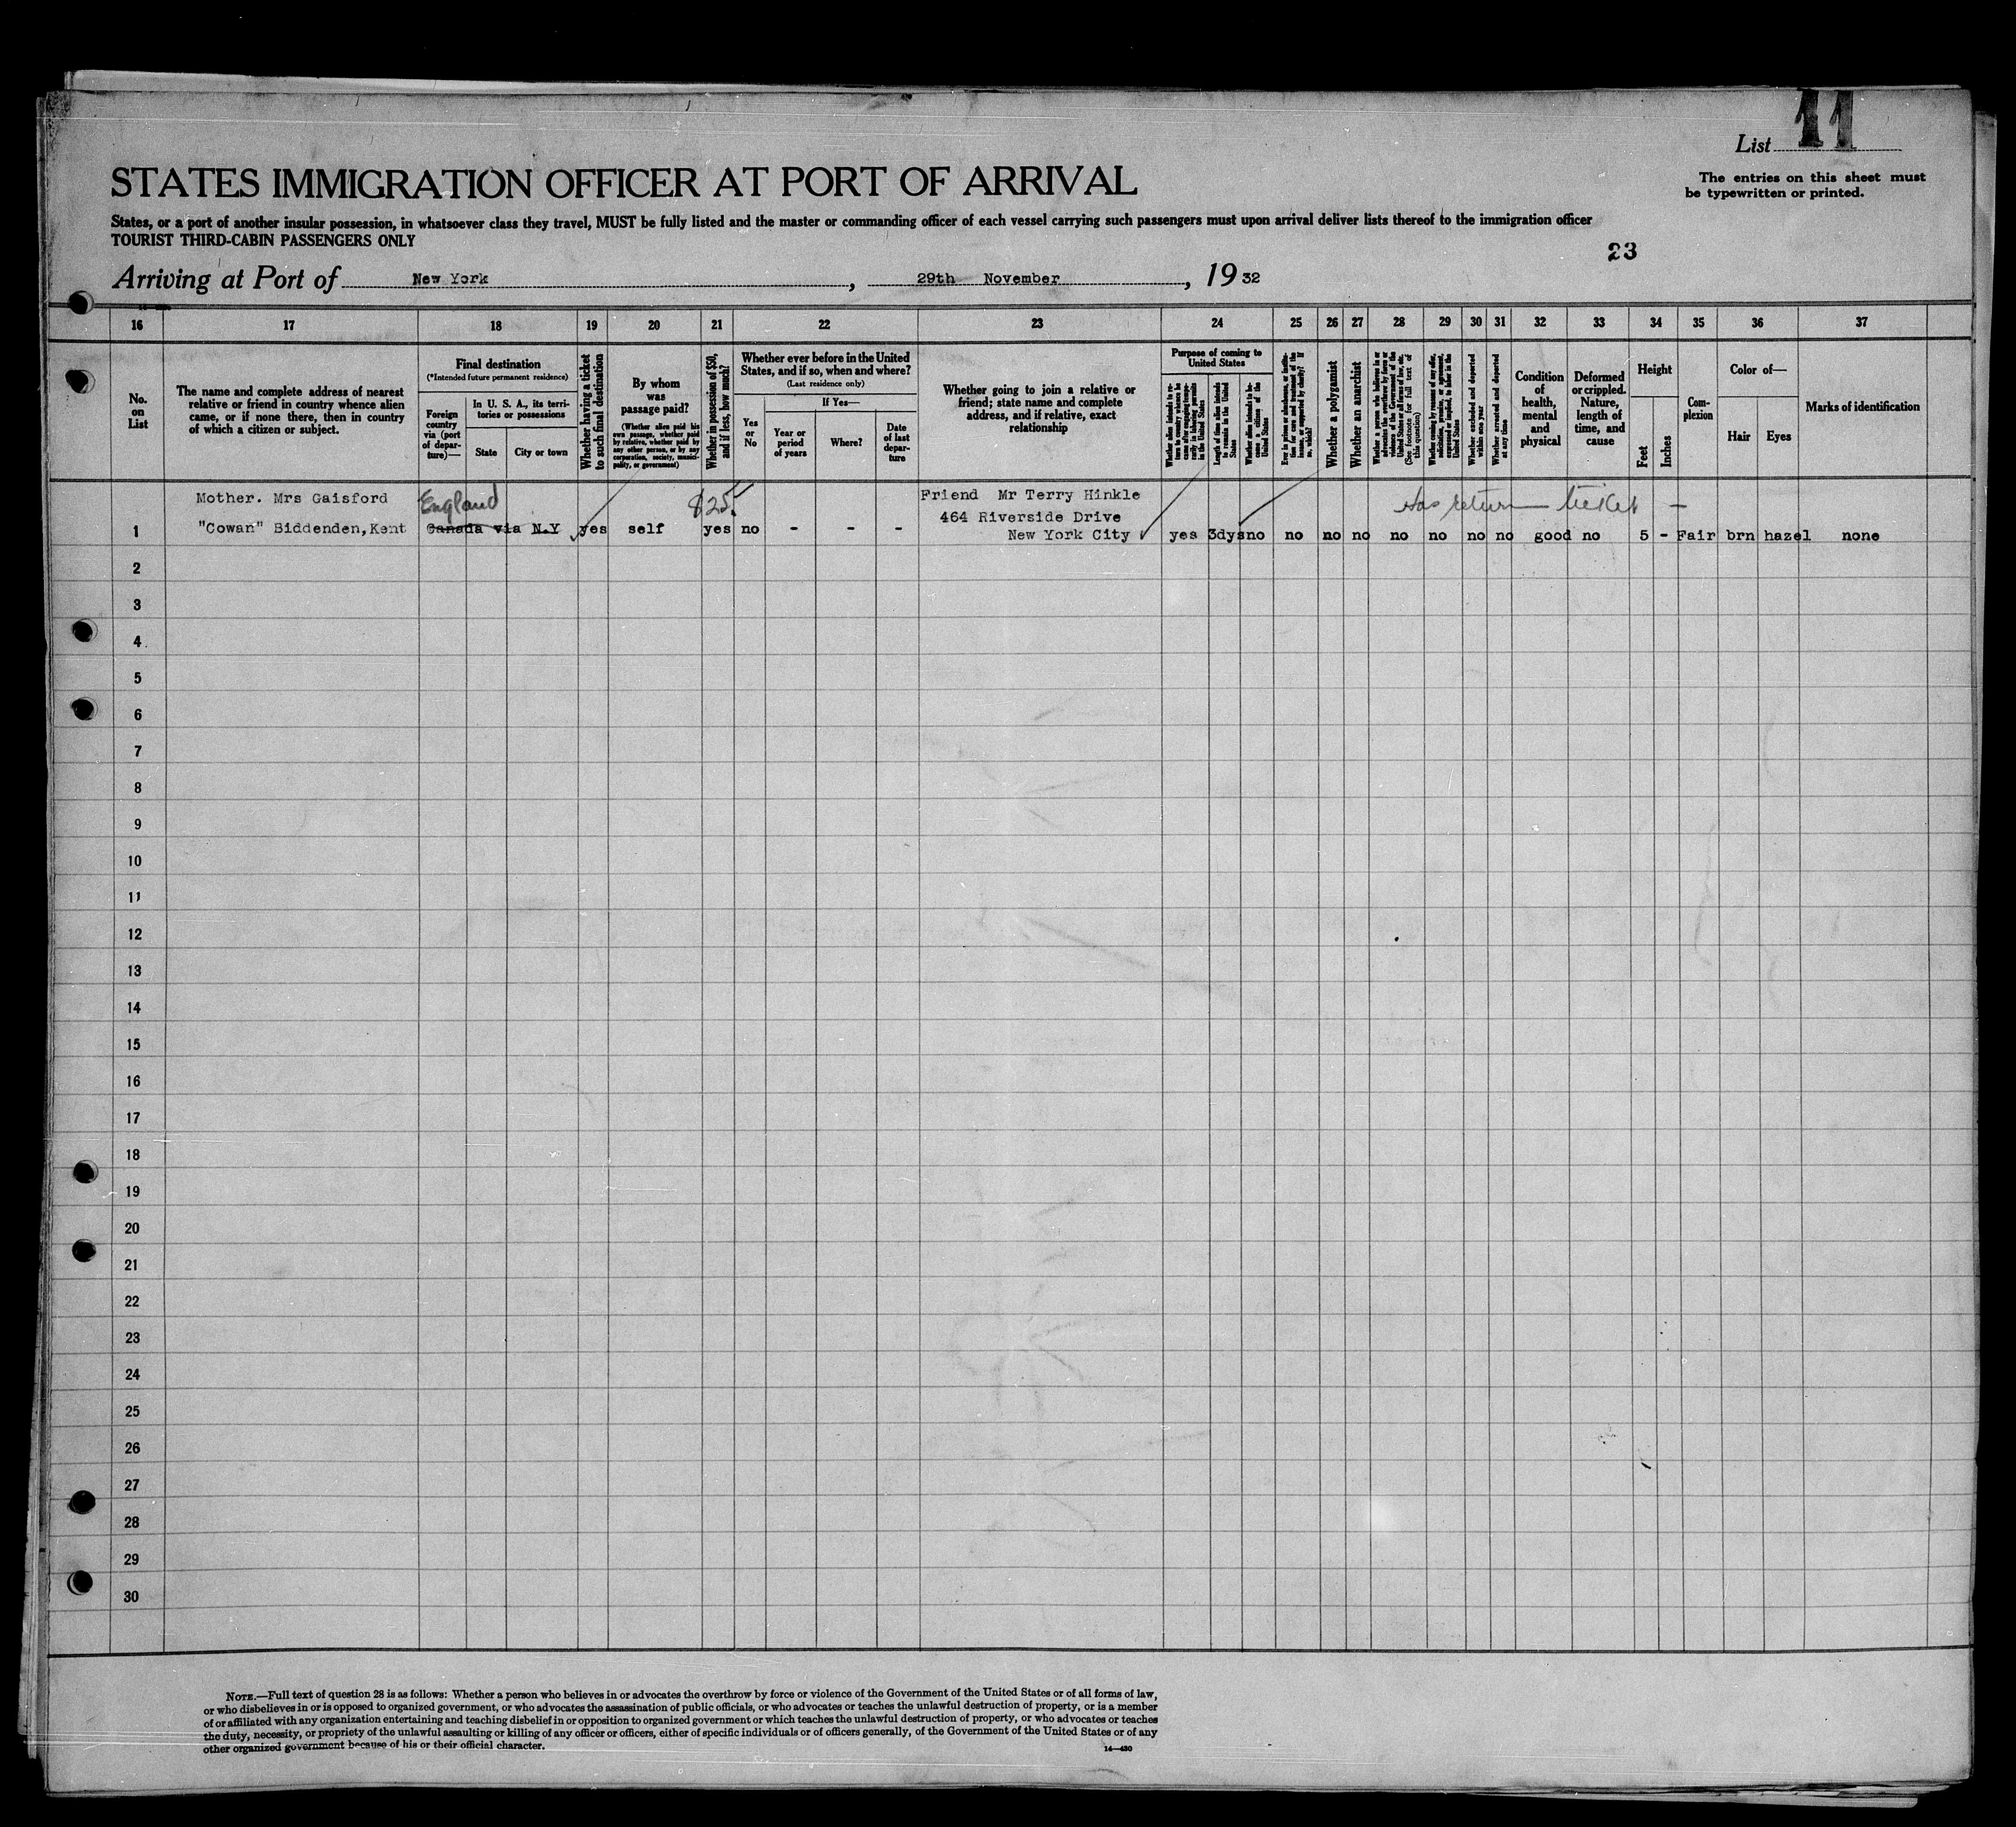 List 11
STATES IMMIGRATION OFFICER AT PORT OF ARRIVAL
The entries on this sheet must
be typewritten or printed.
States, or a port of another insular possession, in whatsoever class they travel, MUST be fully listed and the master or commanding officer of each vessel carrying such passengers must upon arrival deliver lists thereof to the immigration officer
TOURIST THIRD-CABIN PASSENGERS ONLY
23
Arriving at Port of New York, 29th November, 1932
16 17 18 19 20 21 22 23 24 25 26 27 28 29 30 31 32 33 34 35 36 37
No.
on
List
The name and complete address of nearest
relative or friend in country whence alien
came, or if none there, then in country
of which a citizen or subject.
Final destination
(*Intended future permanent residence)
Foreign
country
via (port
of depar-
ture)—
In U. S. A., its terri-
tories or possessions
State
City or town
Whether having a ticket
to such final destination
By whom
was
passage paid?
(Whether alien paid his
own passage, whether paid
by relative, whether paid by
any other person, or by any
corporation, society, munici-
pality, or government)
Whether in possession of $50,
and if less, how much?
Whether ever before in the United
States, and if so, when and where?
(Last residence only)
Yes
or
No
If Yes—
Year or
period
of years
Where?
Date
of last
depar-
ture
Whether going to join a relative or
friend; state name and complete
address, and if relative, exact
relationship
Purpose of coming to
United States
Whether alien intends to re-
turn to country whence he
came after engaging tempo-
rarily in laboring pursuits
in the United States
Length of time alien intends
to remain in the United
States
Whether alien intends to be-
come a citizen of the
United States
Ever in prison or almshouse, or institu-
tion for care and treatment of the
insane, or supported by charity? If
so, which?
Whether a polygamist
Whether an anarchist
Whether a person who believes in or
advocates the overthrow by force or
violence of the Government of the
United States or all forms of law, etc.
(See footnote for full text of
this question)
Whether coming by reason of any offer,
solicitation, promise, or agreement,
expressed or implied, to labor in the
United States
Whether excluded and deported
within one year
Whether arrested and deported
at any time
Condition
of
health,
mental
and
physical
Deformed
or crippled.
Nature,
length of
time, and
cause
Height
Feet
Inches
Com-
plexion
Color of—
Hair
Eyes
Marks of identification
Mother. Mrs Gaisford England $25. Friend Mr Terry Hinkle Has return ticket —
464 Riverside Drive
1 "Cowan" Biddenden, Kent Canada via N.Y yes self yes no - - - New York City yes 3dys no no no no no no no no good no 5 - Fair brn hazel none
2
3
4
5
6
7
8
9
10
11
12
13
14
15
16
17
18
19
20
21
22
23
24
25
26
27
28
29
30
NOTE.—Full text of question 28 is as follows: Whether a person who believes in or advocates the overthrow by force or violence of the Government of the United States or of all forms of law,
or who disbelieves in or is opposed to organized government, or who advocates the assassination of public officials, or who advocates or teaches the unlawful destruction of property, or is a member
of or affiliated with any organization entertaining and teaching disbelief in or opposition to organized government or which teaches the unlawful destruction of property, or who advocates or teaches
the duty, necessity, or propriety of the unlawful assaulting or killing of any officer or officers, either of specific individuals or of officers generally, of the Government of the United States or of any
other organized government because of his or their official character.
14—430